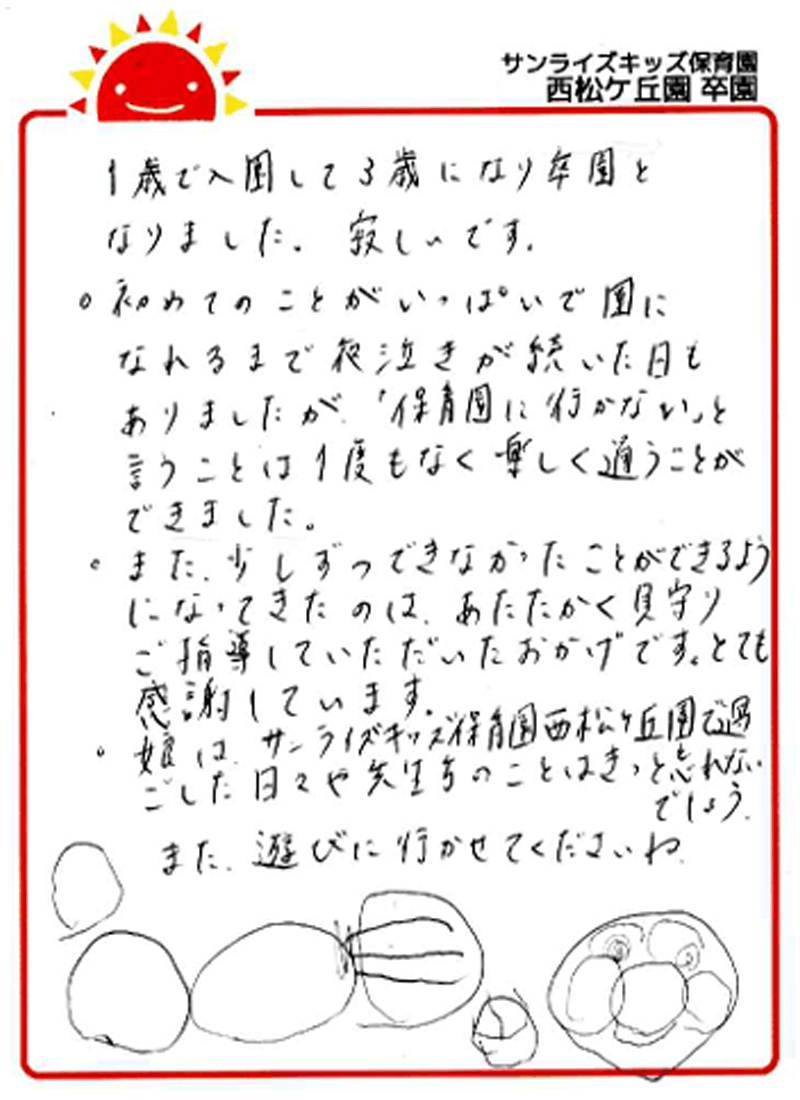 サンライズキッズ保育園
西松ケ丘園 卒園
1歳で入園して3歳になり卒園と
なりました。寂しいです。
。初めてのことがいっぱいで園に
なれるまで夜泣きが続いた日も
ありましたが、「保育園に行かない」と
言うことは1度もなく楽しく通うことが
できました。
。また、少しずつできなかったことができるよう
になってきたのは、あたたかく見守り
ご指導していただいたおかげです。とても
感謝しています。
。娘は、サンライズキッズ保育園西松ケ丘園で過
ごした日々や先生方のことはきっと忘れない
でしょう。
また、遊びに行かせてくださいね。